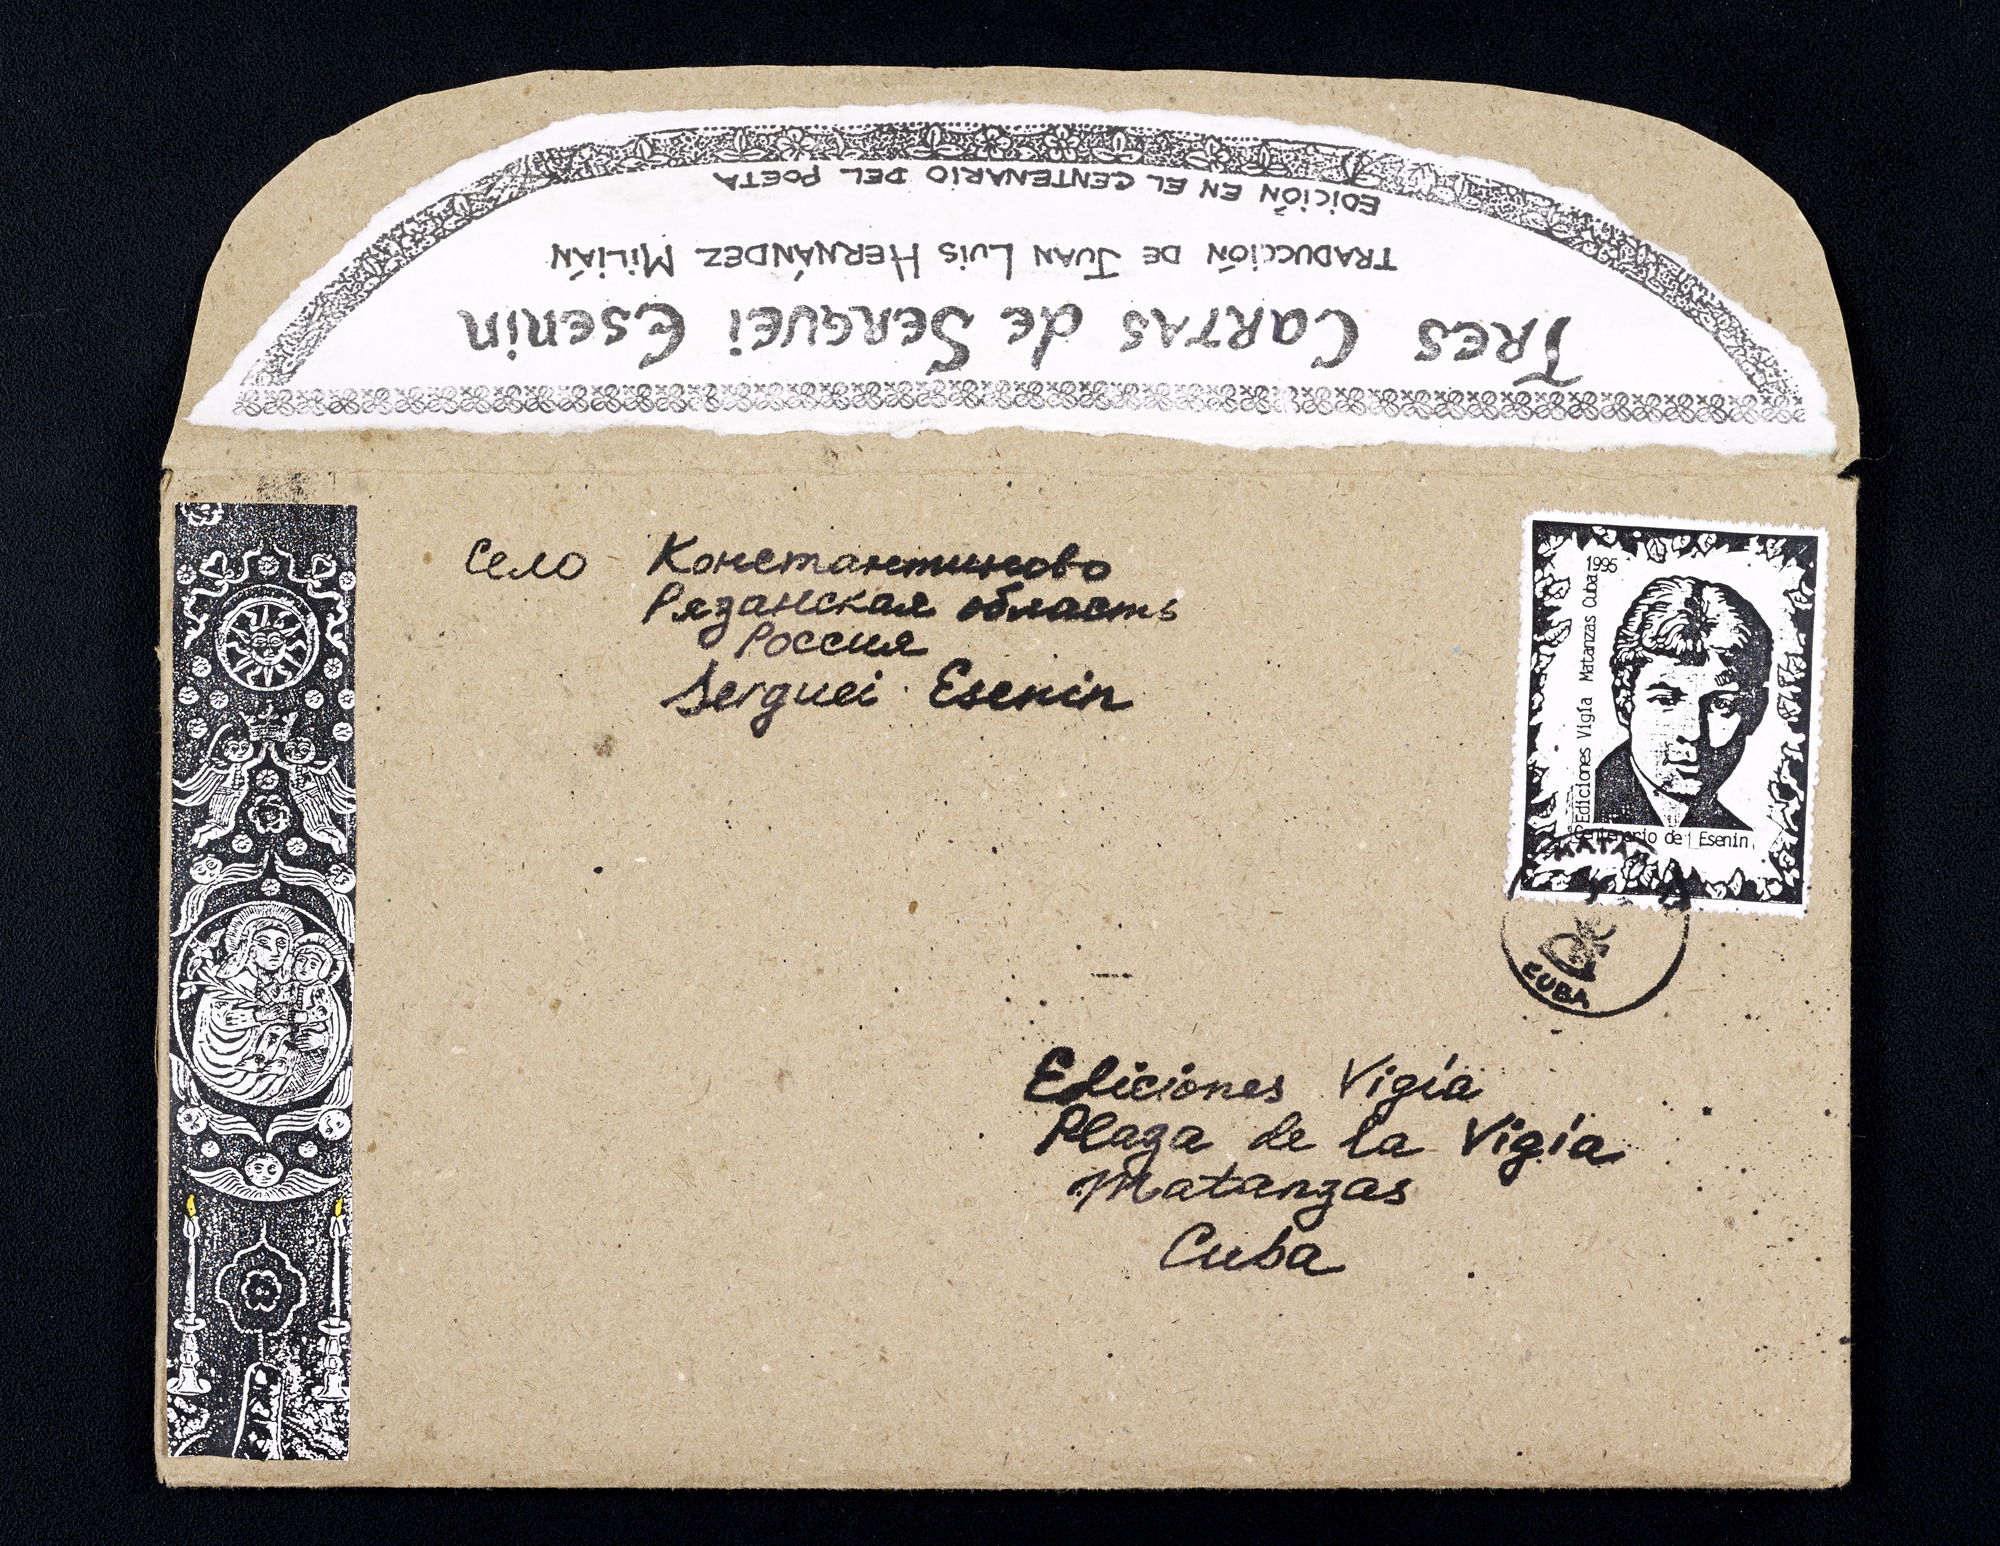 Tres Cartas de Serguei Esenin
Traducción de Juan Luis Hernández Milián
Edición en el centenario del poeta
село Константиново
Рязанская область
Россия
Serguei Esenin
1995
Ediciones Vigía Matanzas Cuba
Centenario de Esenin
CUBA
Ediciones Vigía
Plaza de la Vigía
Matanzas
Cuba